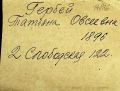 Гербей
Татьяна Овсеевна
1896
2 Слободская 122